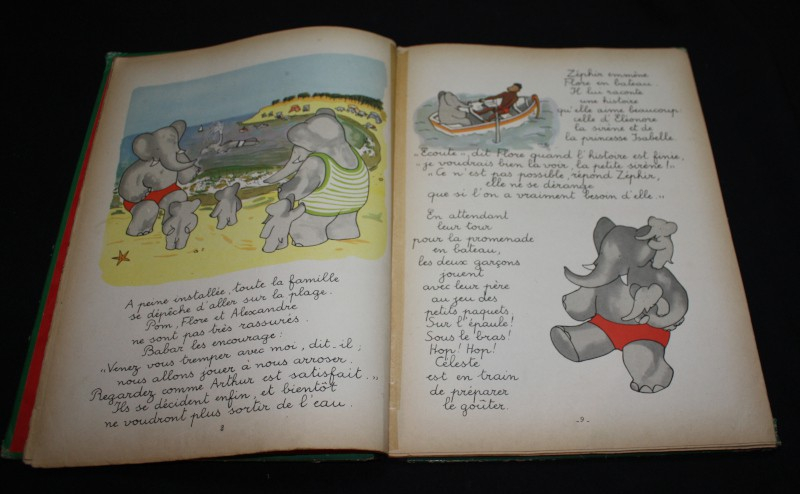 A peine installée, toute la famille
se dépêche d'aller sur la plage.
Pom, Flore et Alexandre
ne sont pas très rassurés.
Babar les encourage:
"Venez vous tremper avec moi, dit-il,
nous allons jouer à nous arroser.
Regardez comme Arthur est satisfait."
Ils se décident enfin, et bientôt
ne voudront plus sortir de l'eau.
8
Zéphir emmène
Flore en bateau.
Il lui raconte
une histoire
qu'elle aime beaucoup:
celle d'Eléonore
la sirène et de
la princesse Isabelle.
"Ecoute", dit Flore quand l'histoire est finie,
"je voudrais bien la voir, la petite sirène!"
"Ce n'est pas possible, répond Zéphir,
elle ne se dérange
que si l'on a vraiment besoin d'elle."
En attendant
leur tour
pour la promenade
en bateau,
les deux garçons
jouent
avec leur père
au jeu des
petits paquets,
Sur l'épaule!
Sous le bras!
Hop! Hop!
Céleste
est en train
de préparer
le goûter.
-9-